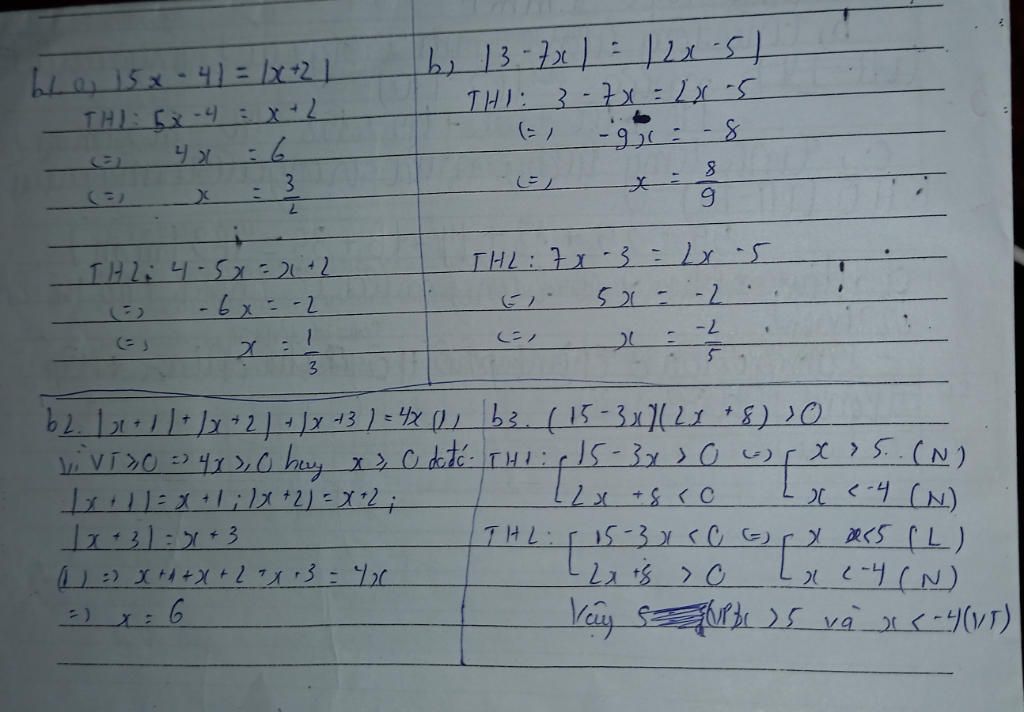 b1. a, |5x - 4| = |x+2|
TH1: 5x - 4 = x + 2
(=) 4x = 6
(=) x = 3/2
TH2: 4 - 5x = x + 2
(=) -6x = -2
(=) x = 1/3
b, |3 - 7x| = |2x - 5|
TH1: 3 - 7x = 2x - 5
(=) -9x = -8
(=) x = 8/9
TH2: 7x - 3 = 2x - 5
(=) 5x = -2
(=) x = -2/5
b2. |x+1| + |x+2| + |x+3| = 4x (1)
Vì VT ≥ 0 => 4x ≥ 0 hay x ≥ 0 do đó
|x+1| = x+1; |x+2| = x+2;
|x+3| = x+3
(1) => x+1+x+2+x+3 = 4x
=> x = 6
b3. (15 - 3x)(2x + 8) > 0
TH1: [ 15 - 3x > 0 (=) [ x > 5 (N)
[ 2x + 8 < 0 [ x < -4 (N)
TH2: [ 15 - 3x < 0 (=) [ x < 5 (L)
[ 2x + 8 > 0 [ x < -4 (N)
Vậy x > 5 và x < -4 (VT)